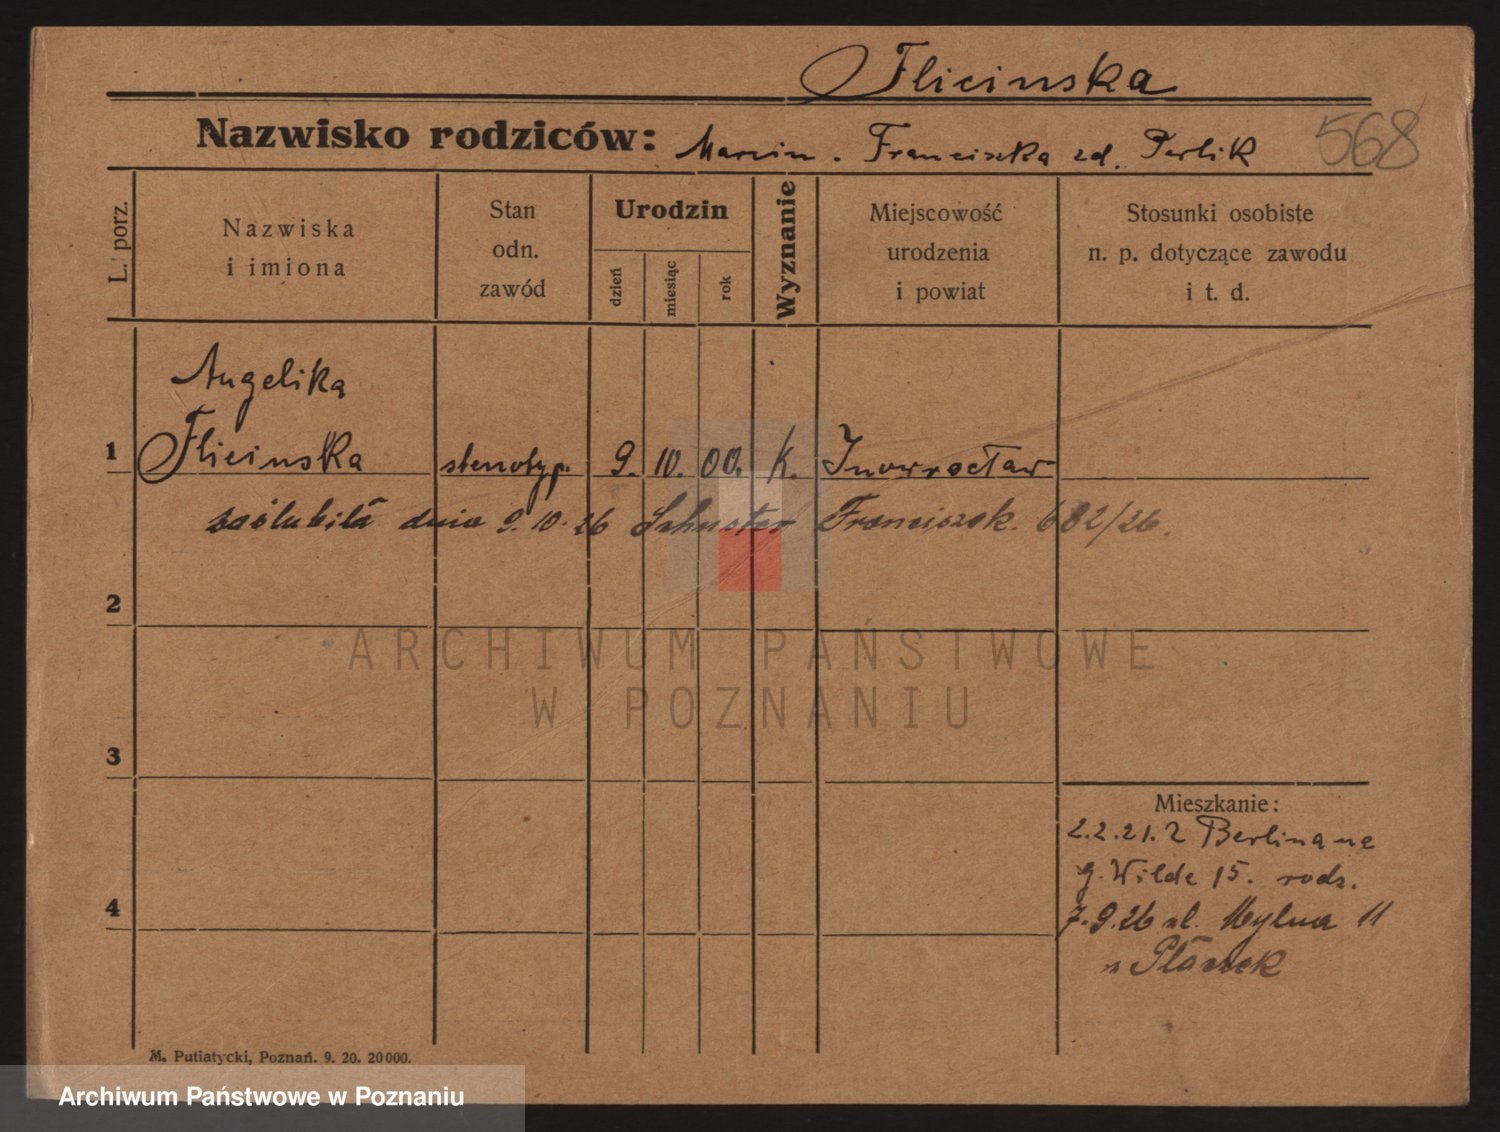 Flicinska
Nazwisko rodziców: Marcin. Franciszka zd. Perlik 568
L. porz.
Nazwiska
i imiona
Stan
odn.
zawód
Urodzin
dzień
miesiąc
rok
Wyznanie
Miejscowość
urodzenia
i powiat
Stosunki osobiste
n. p. dotyczące zawodu
i t. d.
Angelika
1 Flicinska stenotyp. 9. 10. 00. K. Inowrocław
zaślubiła dnia 9. 10. 26 Schuster Franciszek. 682/26.
2
ARCHIWUM PAŃSTWOWE
W POZNANIU
3
Mieszkanie:
2.2.21. Z Berlina na
g. Wilde 15. rodz.
4
7.9.26 ul. Mylna 11
M. Putiatycki, Poznań. 9. 20. 20000.
Archiwum Państwowe w Poznaniu